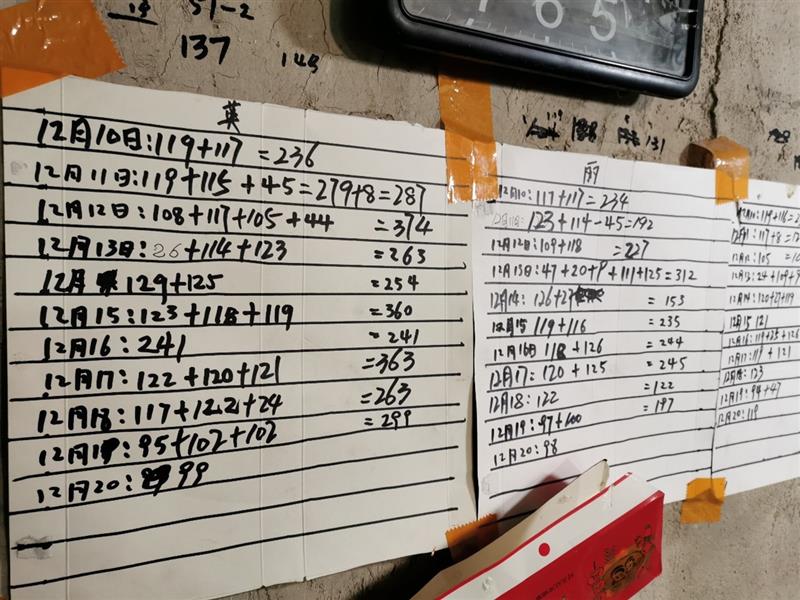 51-2
137
英
12月10日:119+117=236
12月11日:119+115+45=279+8=287
12月12日:108+117+105+44=374
12月13日:26+114+123=263
12月 129+125=254
12月15:123+118+119=360
12月16:241=241
12月17:122+120+121=363
12月18:117+122+24=263
12月19:95+102+102=299
12月20:99
雨
12月10:117+117=234
12月11日:123+114-45=192
12月12日:109+118=227
12月13日:47+20+9+111+125=312
12月14:126+27=153
12月15 119+116=235
12月16日 118+126=244
12月17:120+125=245
12月18:122=122
12月19:97+100=197
12月20:98
12月10:119+116=2
12月11:117+8=12
12月12:105=10
12月13:24+109+9
12月14:120+27+119
12月15 121
12月16:119+25+126
12月17:119+121
12月18:123
12月19:94+47
12月20:119
6 5
131